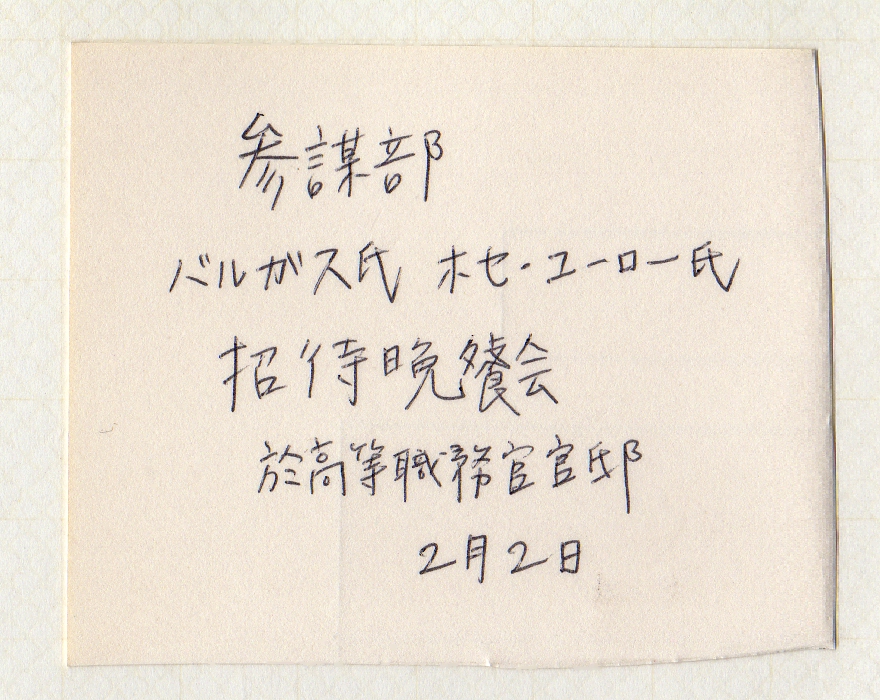 参謀部
バルガス氏 ホセ・ユーロー氏
招待晩餐会
於高等職務官官邸
2月2日